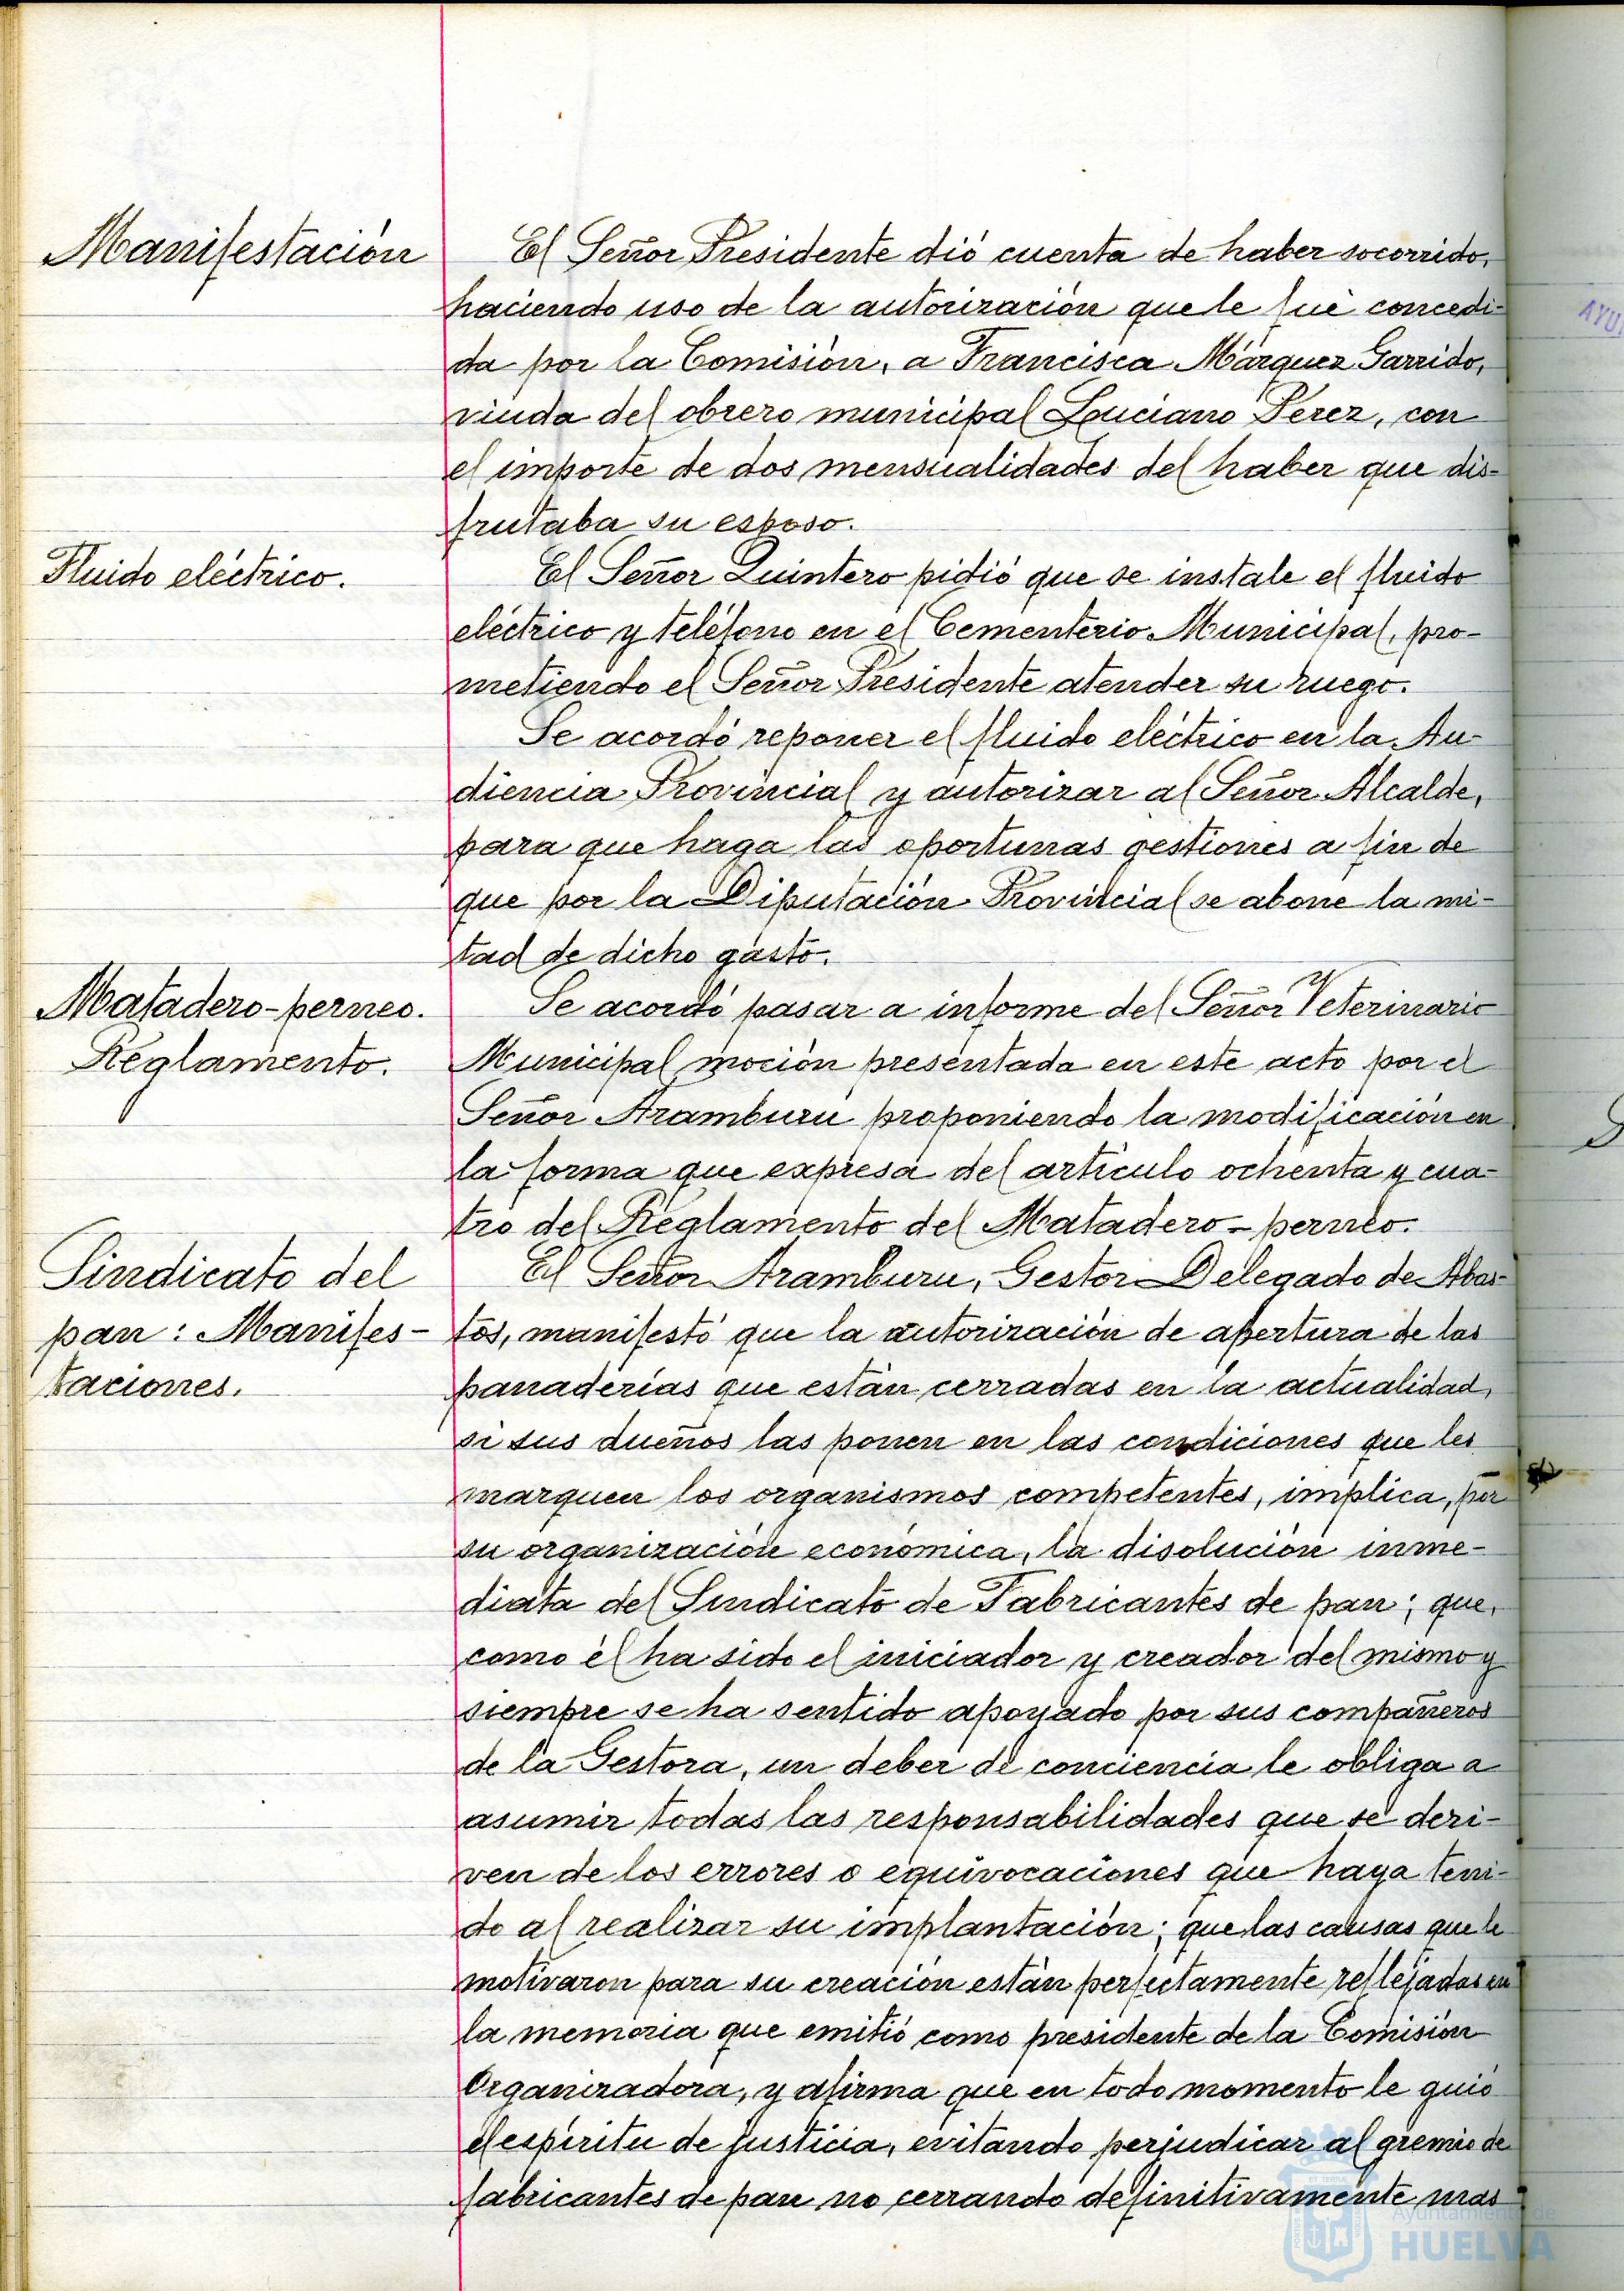 Manifestación
El Señor Presidente dió cuenta de haber socorrido,
haciendo uso de la autorización que le fué concedi-
da por la Comisión, a Francisca Márquez Garrido,
viuda del obrero municipal Luciano Perez, con
el importe de dos mensualidades del haber que dis-
frutaba su esposo.
Fluido eléctrico.
El Señor Quintero pidió que se instale el fluido
eléctrico y teléfono en el Cementerio Municipal, pro-
metiendo el Señor Presidente atender su ruego.
Se acordó reponer el fluido eléctrico en la Au-
diencia Provincial y autorizar al Señor Alcalde,
para que haga las oportunas gestiones a fin de
que por la Diputación Provincial se abone la mi-
tad de dicho gasto.
Matadero-perneo.
Reglamento.
Se acordó pasar a informe del Señor Veterinario
Municipal moción presentada en este acto por el
Señor Aramburu proponiendo la modificación en
la forma que expresa del artículo ochenta y cua-
tro del Reglamento del Matadero-perneo.
Sindicato del
pan: Manifes-
taciones.
El Señor Aramburu, Gestor Delegado de Abas-
tos, manifestó que la autorización de apertura de las
panaderías que están cerradas en la actualidad,
si sus dueños las ponen en las condiciones que les
marquen los organismos competentes, implica, por
su organización económica, la disolución inme-
diata del Sindicato de Fabricantes de pan; que,
como él ha sido el iniciador y creador del mismo y
siempre se ha sentido apoyado por sus compañeros
de la Gestora, un deber de conciencia le obliga a
asumir todas las responsabilidades que se deri-
ven de los errores o equivocaciones que haya teni-
do al realizar su implantación; que las causas que le
motivaron para su creación están perfectamente reflejadas en
la memoria que emitió como presidente de la Comisión
Organizadora, y afirma que en todo momento le guió
el espíritu de justicia, evitando perjudicar al gremio de
fabricantes de pan no cerrando definitivamente mas
Ayuntamiento de
HUELVA